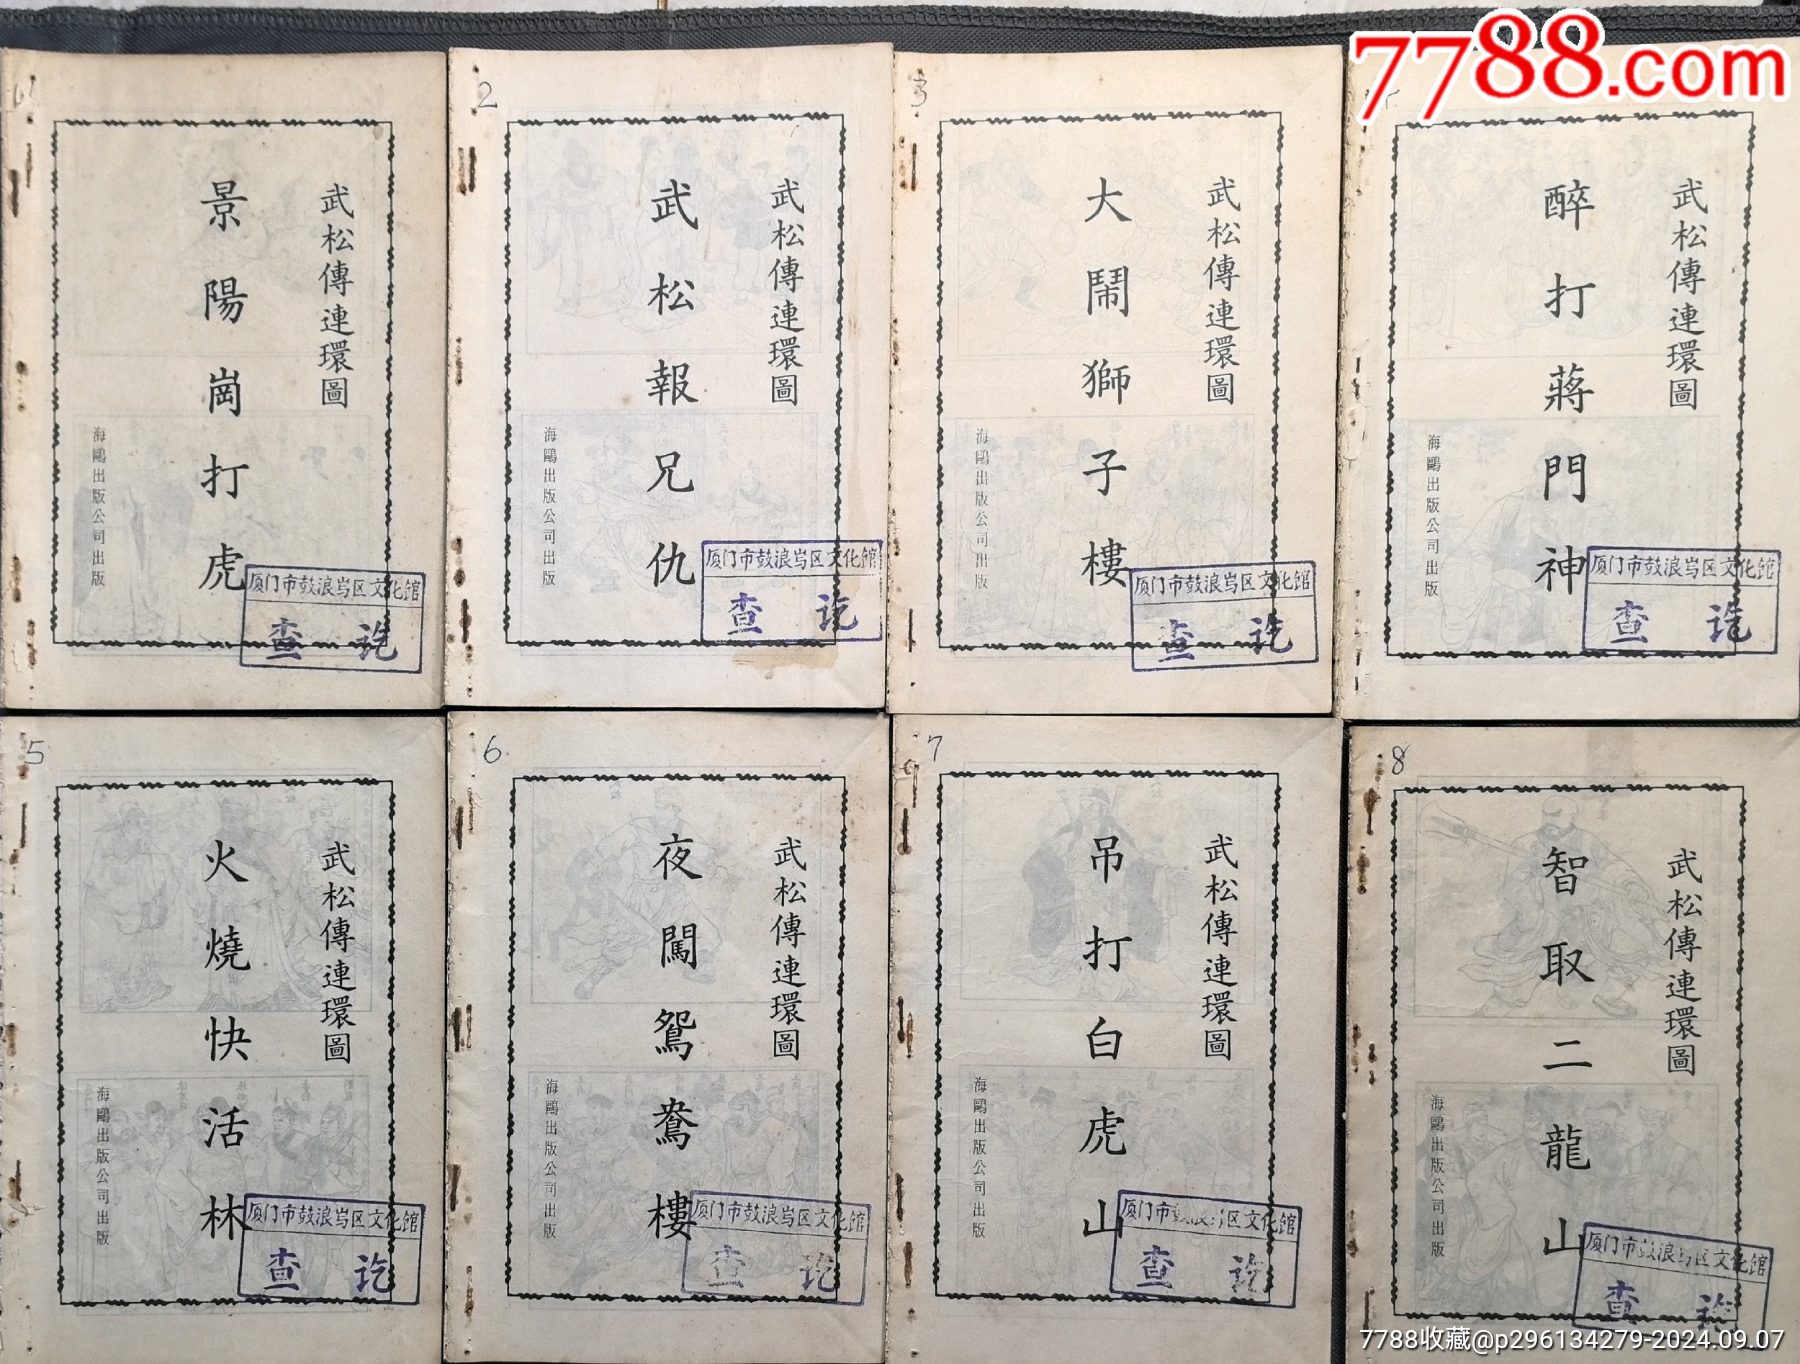 7788.com
1
武松傳連環圖
景陽崗打虎
海鷗出版公司出版
厦门市鼓浪屿区文化馆
查讫
2
武松傳連環圖
武松報兄仇
海鷗出版公司出版
厦门市鼓浪屿区文化馆
查讫
3
武松傳連環圖
大鬧獅子樓
海鷗出版公司出版
厦门市鼓浪屿区文化馆
查讫
武松傳連環圖
醉打蔣門神
海鷗出版公司出版
厦门市鼓浪屿区文化馆
查讫
5
武松傳連環圖
火燒快活林
海鷗出版公司出版
厦门市鼓浪屿区文化馆
查讫
6
武松傳連環圖
夜闖鴛鴦樓
海鷗出版公司出版
厦门市鼓浪屿区文化馆
查讫
7
武松傳連環圖
吊打白虎山
海鷗出版公司出版
厦门市鼓浪屿区文化馆
查讫
8
武松傳連環圖
智取二龍山
海鷗出版公司出版
厦门市鼓浪屿区文化馆
查讫
7788收藏@p296134279-2024.09.07